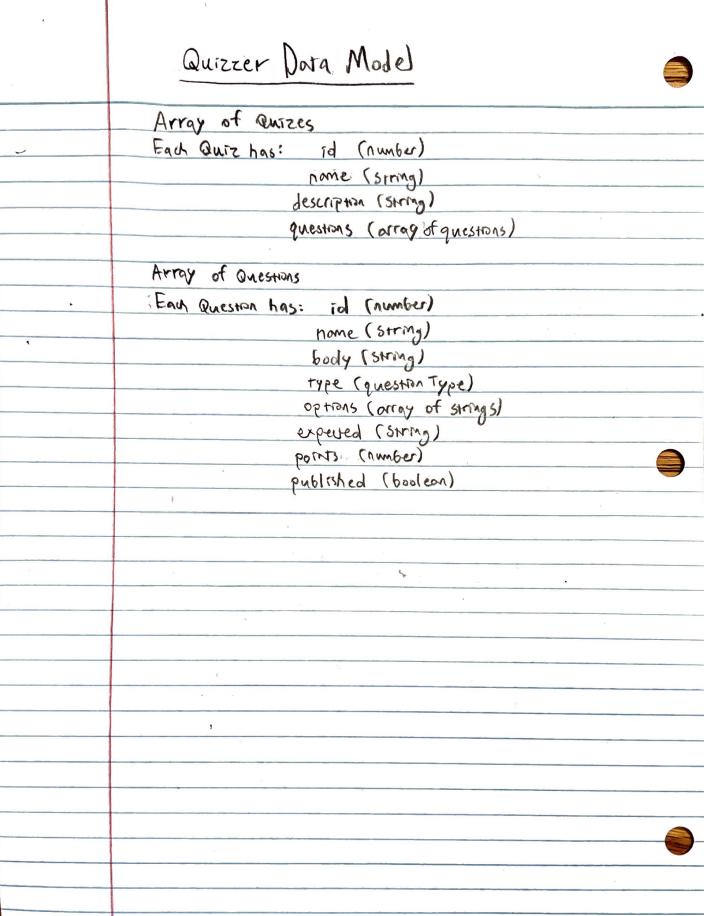 Quizzer Data Model
Array of Quizes
Each Quiz has: id (number)
name (string)
description (string)
questions (array of questions)
Array of Questions
Each Question has: id (number)
name (string)
body (string)
type (question Type)
options (array of strings)
expected (string)
points (number)
published (boolean)